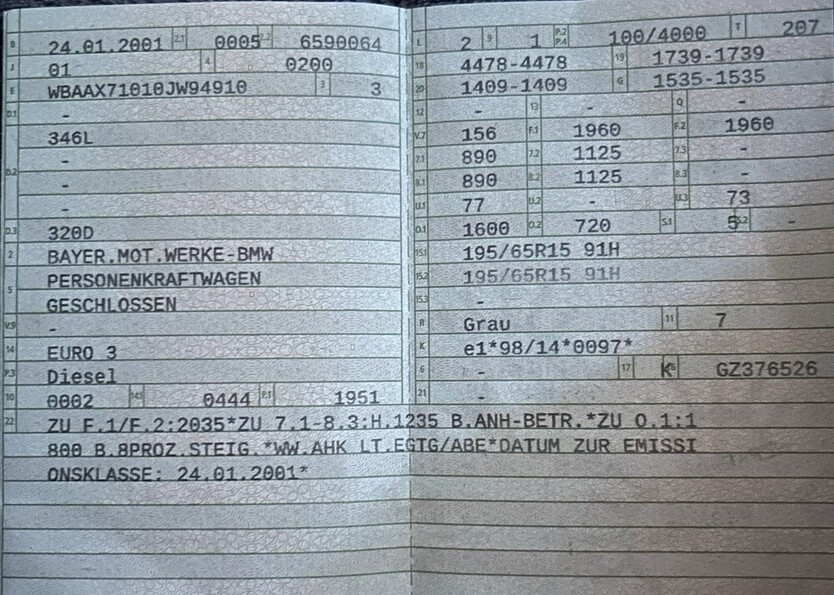 B 24.01.2001 2.1 0005 2.2 6590064
J 01 4 0200
E WBAAX71010JW94910 3 3
D.1 -
346L
-
D.2 -
-
D.3 320D
2 BAYER.MOT.WERKE-BMW
5 PERSONENKRAFTWAGEN
GESCHLOSSEN
V.9 -
14 EURO 3
P.3 Diesel
10 0002 14.1 0444 P.1 1951
L 2 9 1 P.2 P.4 100/4000 T 207
18 4478-4478 19 1739-1739
20 1409-1409 G 1535-1535
12 - 13 - Q -
V.7 156 F.1 1960 F.2 1960
7.1 890 7.2 1125 7.3 -
8.1 890 8.2 1125 8.3 -
U.1 77 U.2 - U.3 73
O.1 1600 O.2 720 S.1 5 S.2 -
15.1 195/65R15 91H
15.2 195/65R15 91H
15.3 -
R Grau 11 7
K e1*98/14*0097*
6 - 17 K 16 GZ376526
21 -
22 ZU F.1/F.2:2035*ZU 7.1-8.3:H.1235 B.ANH-BETR.*ZU O.1:1
800 B.8PROZ.STEIG.*WW.AHK LT.EGTG/ABE*DATUM ZUR EMISSI
ONSKLASSE: 24.01.2001*